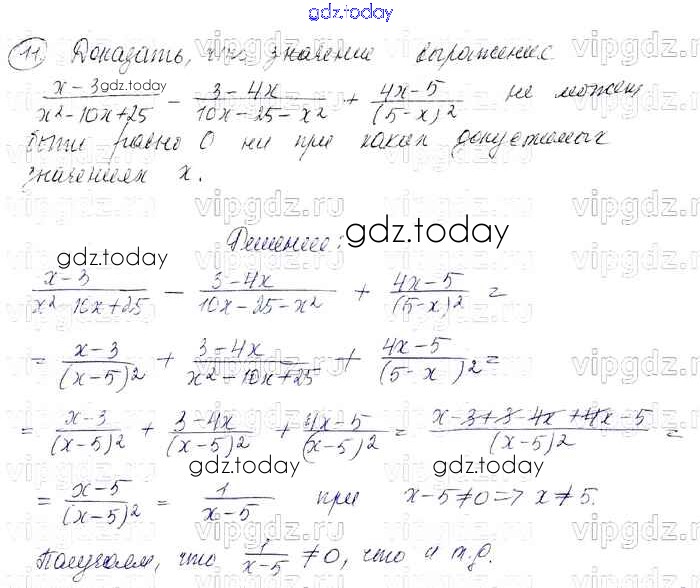 gdz.today
11. Доказать, что значение выражение
(x-3)/(x²-10x+25) - (3-4x)/(10x-25-x²) + (4x-5)/(5-x)² не может
gdz.today
быть равно 0 ни при каких допустимых
значениях x.
Решение:
gdz.today
(x-3)/(x²-10x+25) - (3-4x)/(10x-25-x²) + (4x-5)/(5-x)² =
gdz.today
= (x-3)/(x-5)² + (3-4x)/(x²-10x+25) + (4x-5)/(5-x)² =
gdz.today
= (x-3)/(x-5)² + (3-4x)/(x-5)² + (4x-5)/(x-5)² = (x-3+3-4x+4x-5)/(x-5)² =
gdz.today
gdz.today
= (x-5)/(x-5)² = 1/(x-5) при x-5≠0 => x≠5.
Получаем, что 1/(x-5) ≠0, что и т.д.
gdz.today
vipgdz.ru